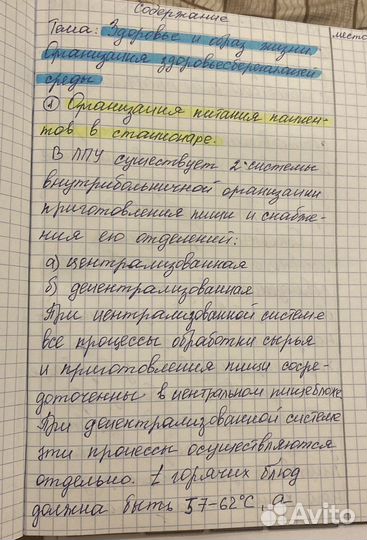 Содержание
Тема: Здоровье и образ жизни
место
Организация здоровьесберегающей
среды
① Организация питания пациен-
тов в стационаре.
В ЛПУ существует 2 системы
внутрибольничной организации
приготовления пищи и снабже-
ния ею отделений:
а) централизованная
б) децентрализованная
При централизованной системе
все процессы обработки сырья
и приготовления пищи сосре-
доточенны в центральном пищеблоке
При децентрализованной системе
эти процессы осуществляются
отдельно. t горячих блюд
должна быть 57-62°C, а
Avito